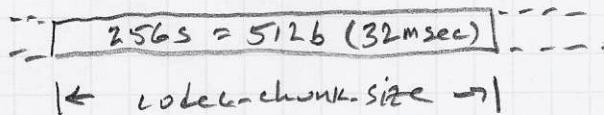 256s = 512b (32msec)
codec-chunk-size